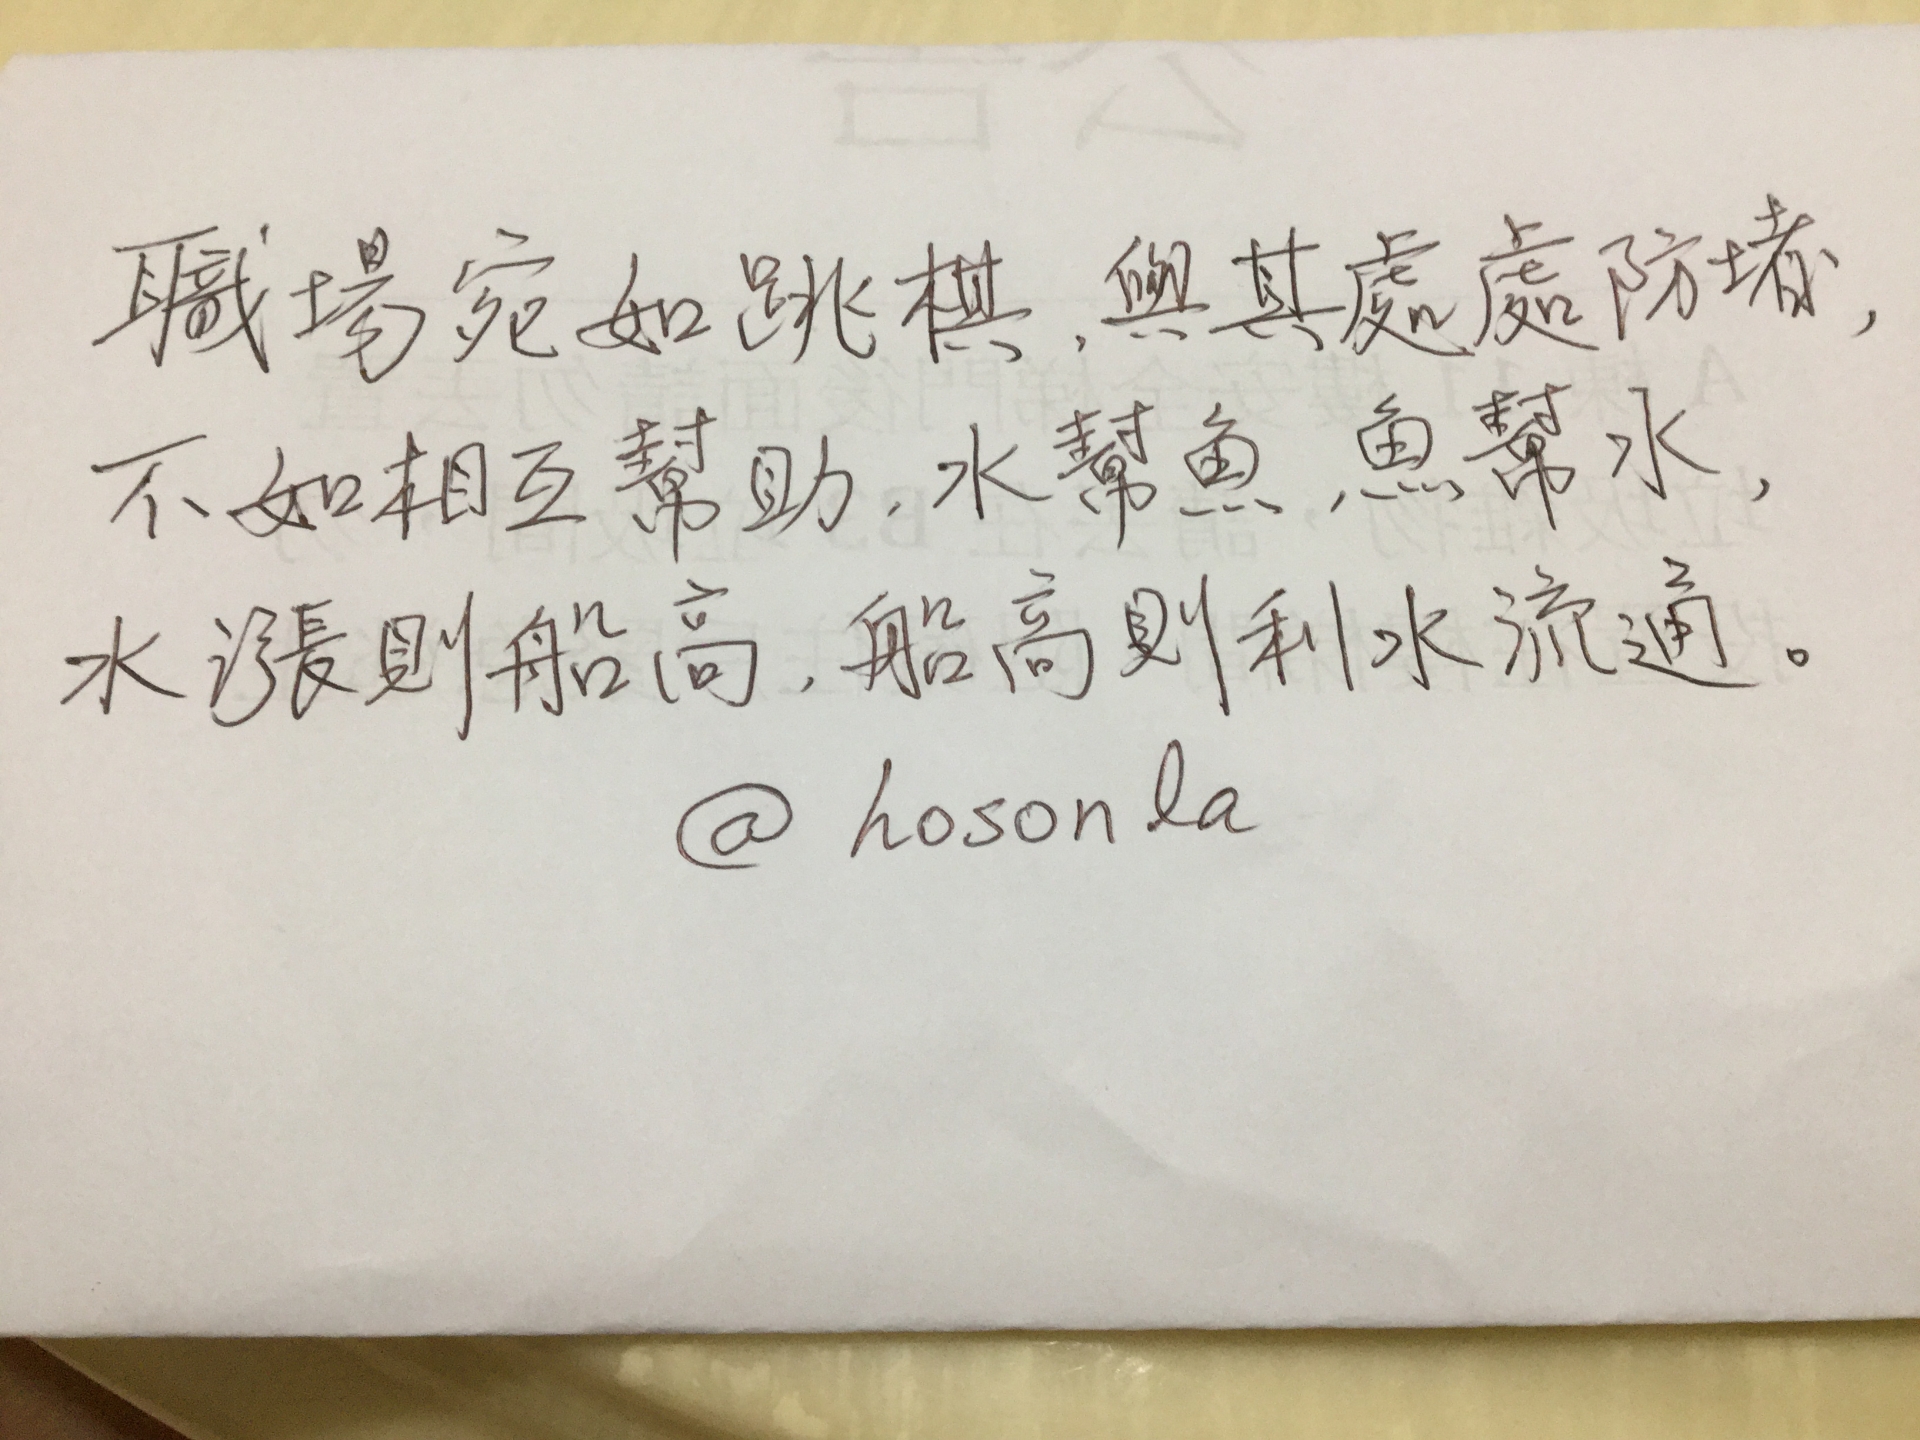 職場宛如跳棋,與其處處防堵,
不如相互幫助,水幫魚,魚幫水,
水漲則船高,船高則利水流通。
@hosonla